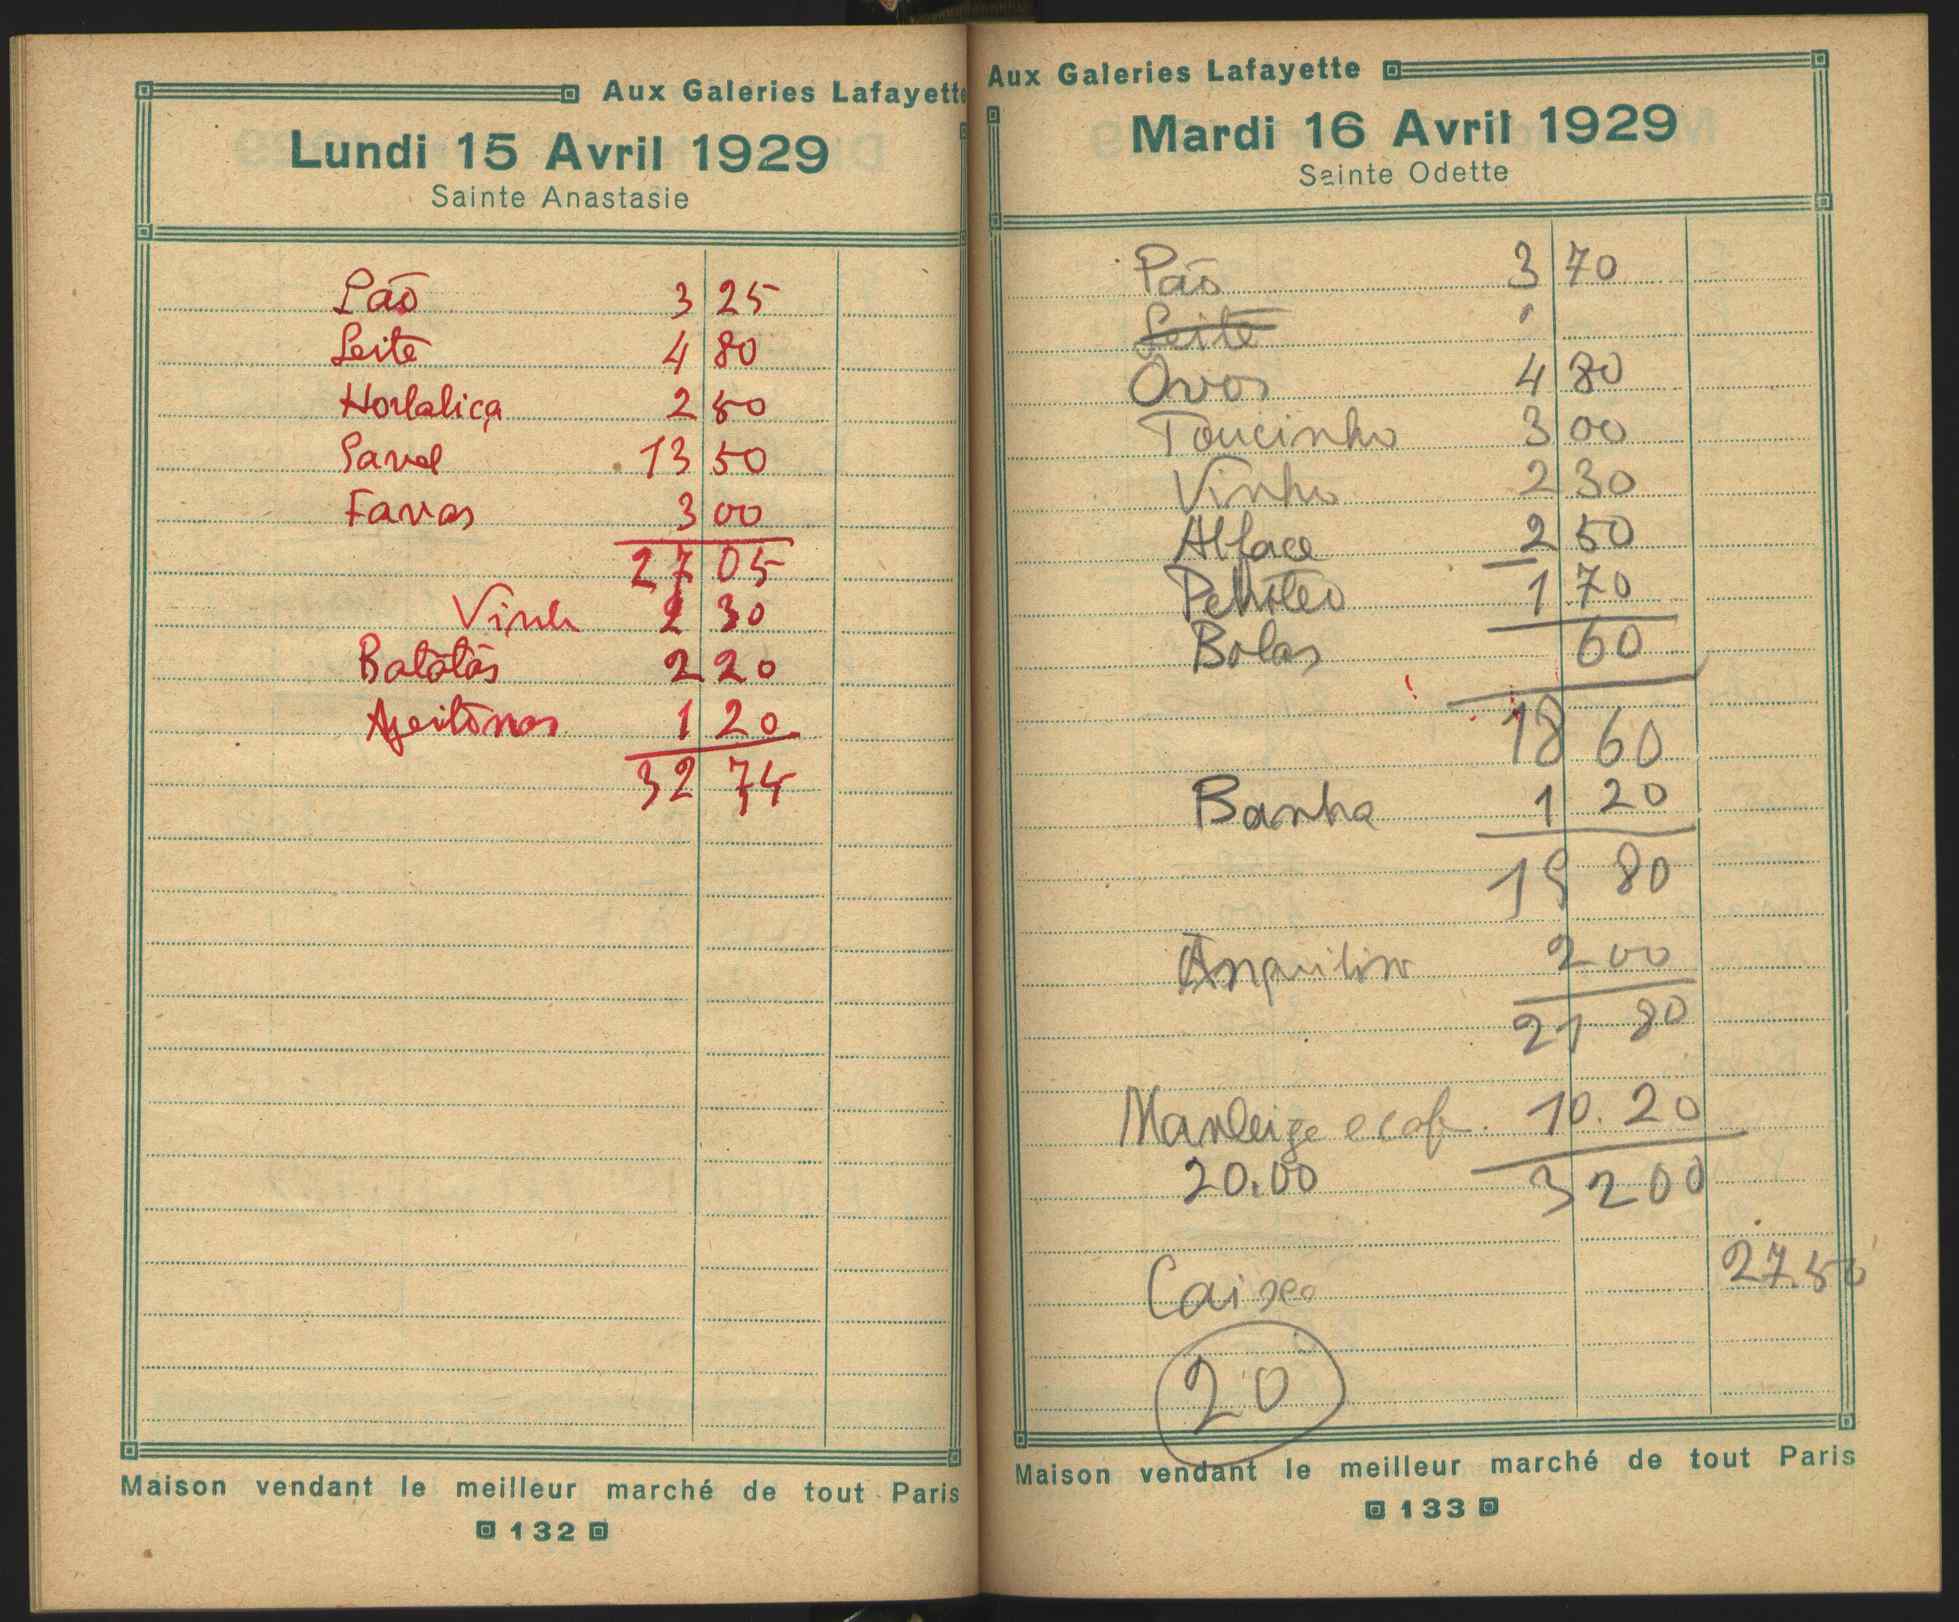 Aux Galeries Lafayette
Lundi 15 Avril 1929
Sainte Anastasie
Pão 3 25
Leite 4 80
Hortaliça 2 50
Savel 13 50
Favas 3 00
27 05
Vinh 2 30
Batatas 2 20
Azeitonas 1 20
32 74
Maison vendant le meilleur marché de tout Paris
132
Aux Galeries Lafayette
Mardi 16 Avril 1929
Sainte Odette
Pão 3 70
Leite
Ovos 4 80
Toucinho 3 00
Vinho 2 30
Alface 2 50
Petróleo 1 70
Bolas 60
18 60
Banha 1 20
19 80
2 00
21 80
Manteiga e caf. 10.20
20.00 32 00
27.50
Caixa
20
Maison vendant le meilleur marché de tout Paris
133